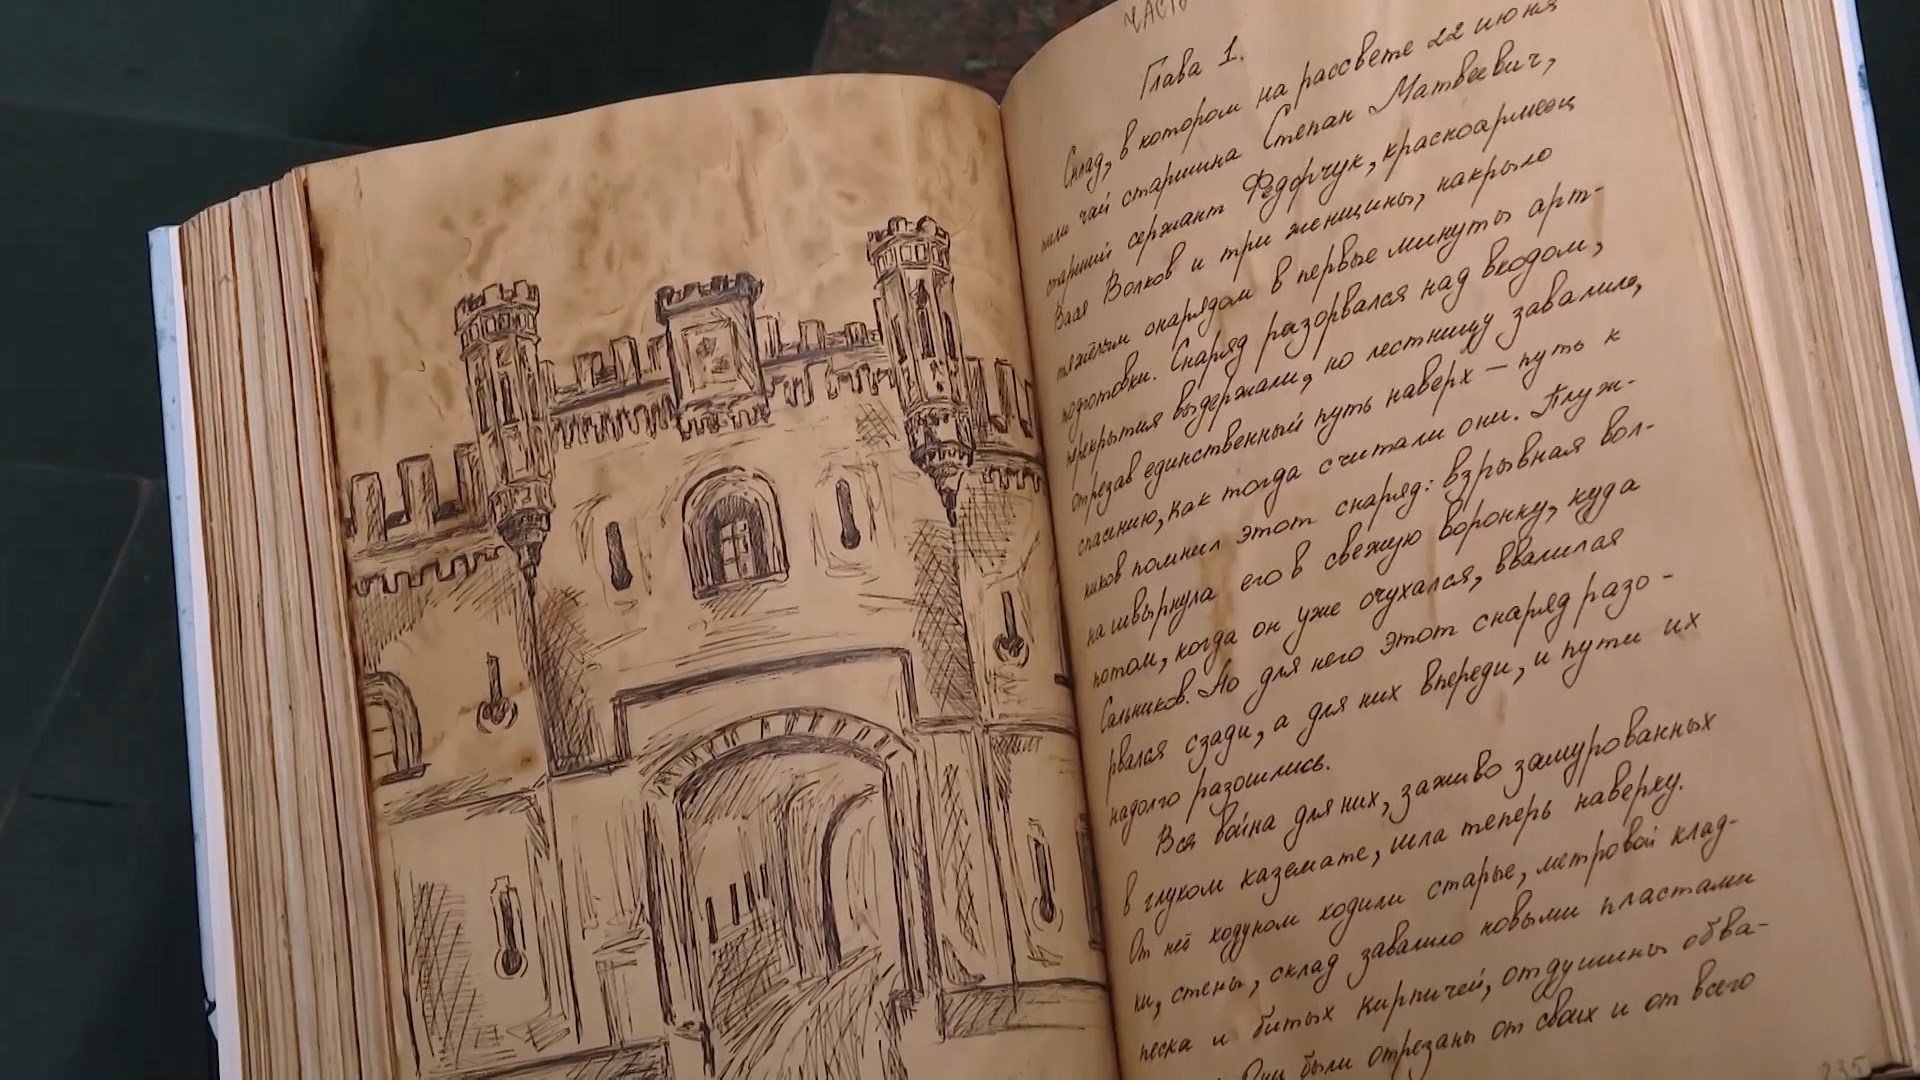 ЧАСТЬ
Глава 1.
Склад, в котором на рассвете 22 июня
пили чай старшина Степан Матвеевич,
старший сержант Федорчук, красноармеец
Вася Волков и три женщины, накрыло
тяжёлым снарядом в первые минуты арт-
подготовки. Снаряд разорвался над входом,
перекрытия выдержали, но лестницу завалило,
отрезав единственный путь наверх — путь к
спасению, как тогда считали они. Плуж-
ников помнил этот снаряд: взрывная вол-
на швырнула его в свежую воронку, куда
потом, когда он уже очухался, ввалился
Сальников. Но для него этот снаряд разо-
рвался сзади, а для них впереди, и пути их
надолго разошлись.
Вся война для них, заживо замурованных
в глухом каземате, шла теперь наверху.
От неё ходуном ходили старые, метровой клад-
ки, стены, склад завалило новыми пластами
песка и битых кирпичей, отдушины обва-
были отрезаны от своих и от всего
235